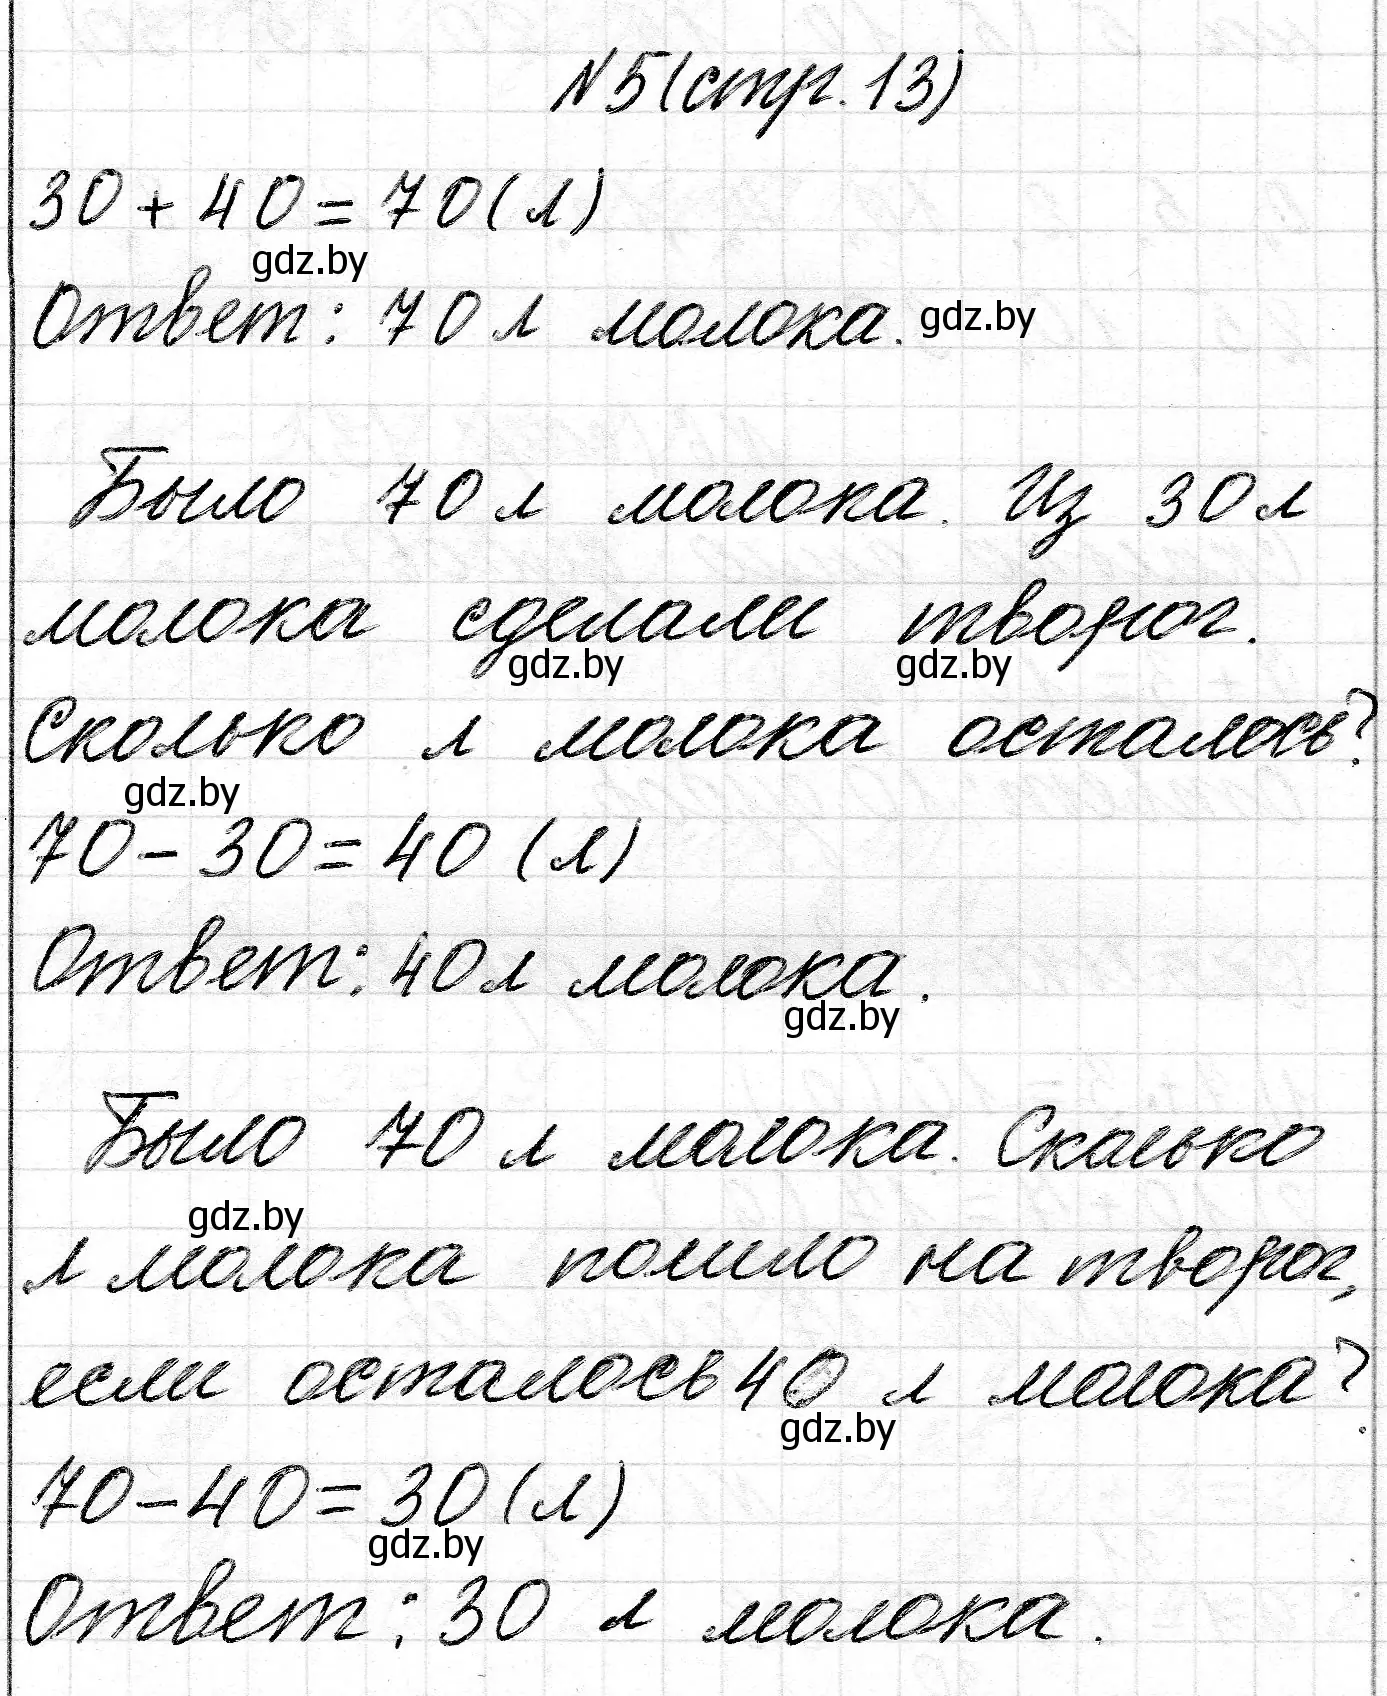 N5(стр.13)
30+40=70(л)
gdz.by
Ответ: 70 л молока. gdz.by
Было 70 л молока. Из 30 л
молока сделали творог.
gdz.by gdz.by
Сколько л молока осталось?
gdz.by
70-30=40 (л)
Ответ: 40 л молока.
gdz.by
Было 70 л молока. Сколько
gdz.by
л молока пошло на творог,
если осталось 40 л молока?
gdz.by
70-40=30(л)
gdz.by
Ответ: 30 л молока.